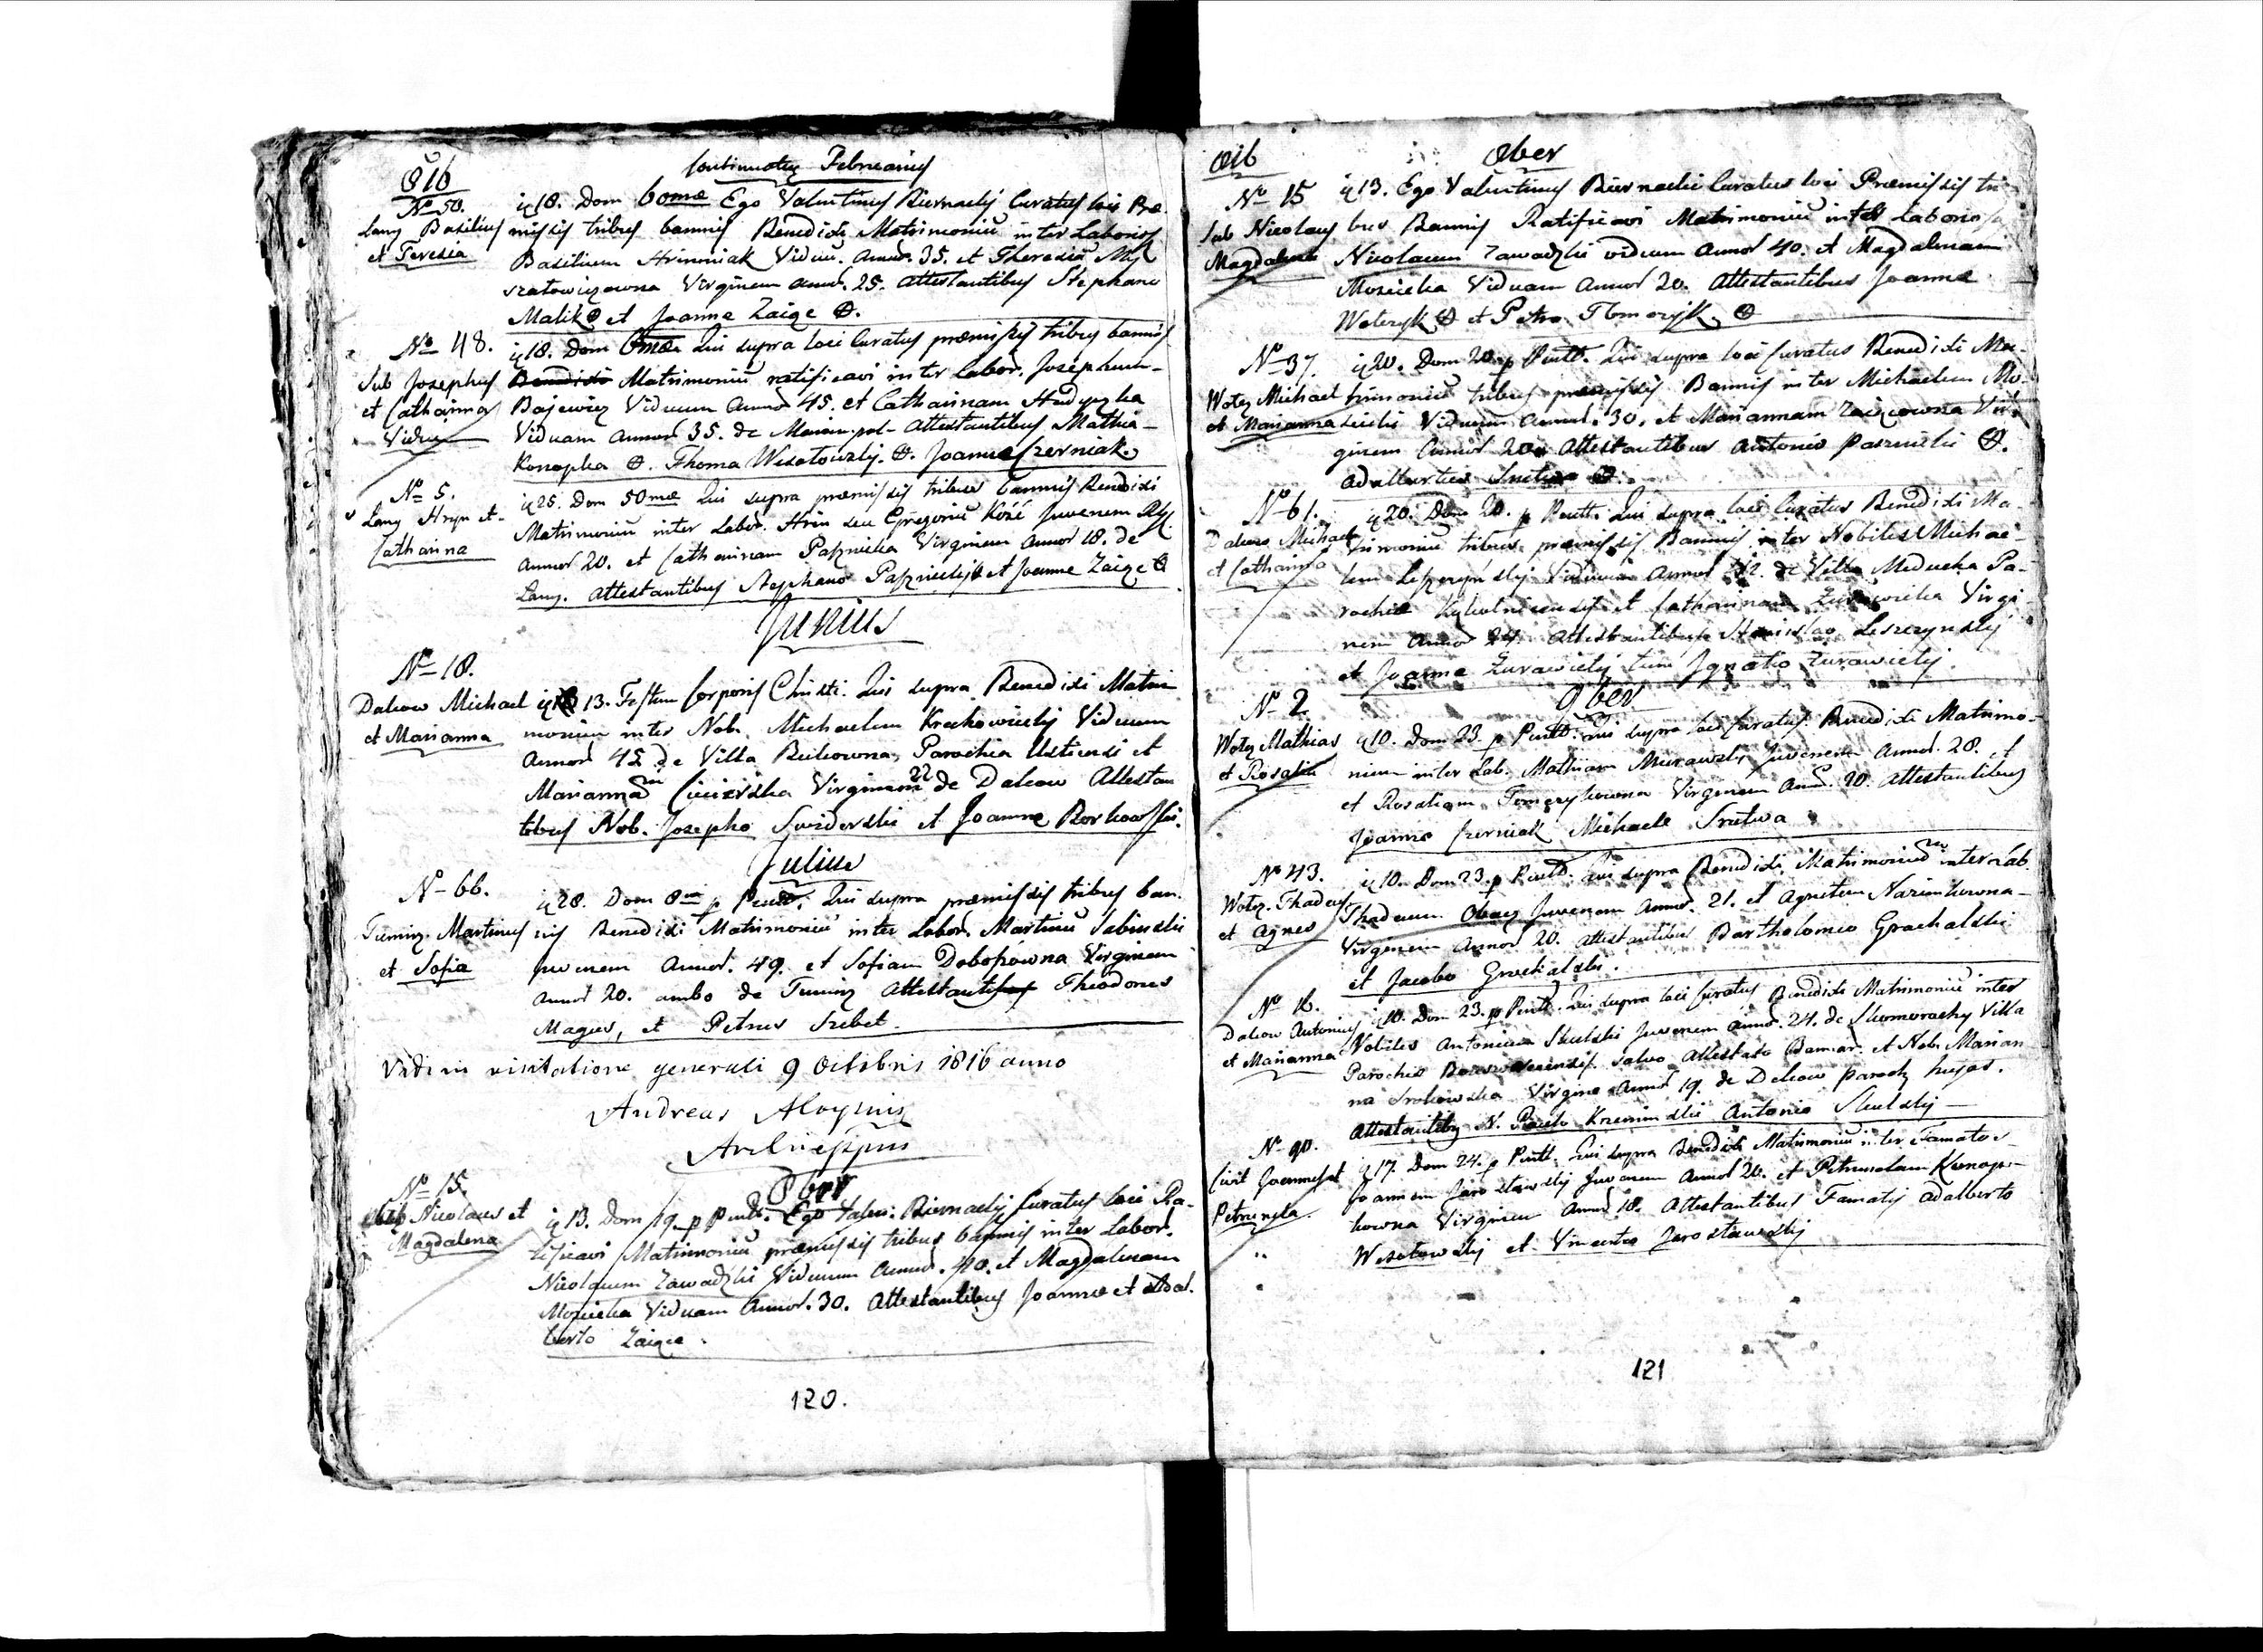 816
Continuatey Februarius
No 50.
Lany Basilius
et Teresia
ig 18. Dom 60mæ Ego Valentinus Biernacky Curatus loci Præ
missis tribus bannis Benedixi Matrimoniũ inter Laborios
Basilium Hrinoniak Viduũ. Annor. 35. et Theresiã
Virginem annor. 25. attestantibus Stephano
Malik et Joanne Zaigc
No 48.
Sub Josephus
et Catharina
Vidui
ig 18. Dom 60mæ Qui supra loci Curatus præmissis tribus bannis
Matrimoniũ ratificavi inter Labor. Josephum
Bajewicz Viduum Annor 45. et Catharinam
Viduam annor 35. de Mariampol attestantibus Mathia
Konopka. Thoma Wesołowsky. Joanne Czerniak.
No 5.
Lany Hryn et
Catharina
ig 25. Dom 50mæ Qui supra præmissis tribus bannis Benedixi
Matrimoniũ inter Labor. Hrin seu Gregoriũ Kozć Juvenem
Annor 20. et Catharinam Paznicka Virginem Annor 18. de
Lany. attestantibus Stephano et Joanne Zaigc
Junius
No 18.
Delcow Michael
et Marianna
13. Festum Corporis Christi. Qui supra Benedixi Matri
monium inter Nob. Michaelem Krechowiecky Viduum
Annor 45 de Villa Bukowna, Parochia Ustiensi et
Mariannam Swiderska Virginem 22 de Delcow Attestan
tibus Nob. Josepho Swiderski et Joanne Borkowski.
Julius
No 66.
Tumirz. Martinus
et Sofia
ig 28. Dom 8va p Pentt. Qui supra præmissis tribus ban.
nis Benedixi Matrimoniũ inter Labor. Martinũ Sabinski
juvenem Annor. 49. et Sofiam Virginem
Annor 20. ambo de Tumirz Attestantibus Theodorus
Magus, et Petrus Szebet.
Vidi in visitatione generali 9 Octobris 1816 anno
Andreas Aloysius
Archieppus
No 15.
Nicolaus et
Magdalena
8ber
ig 13. Dom 19. p Pentt. Ego Valen: Biernacky Curatus loci Ra-
tificavi Matrimoniũ præmissis tribus bannis inter Labor.
Nicolaum Zawadzki Viduum Annor. 40. et Magdalenam
Moscicka Viduam Annor. 30. Attestantibus Joanne et Adal.
berto Zaigce.
120.
816
8ber
No 15
Sub Nicolaus
Magdalena
ig 13. Ego Valentinus Biernacki Curatus loci Præmissis tri
bus Bannis Ratificavi Matrimoniũ inter Laborios
Nicolaum Zawadzki viduum Annor 40. et Magdalenam
Moscicka Viduam Annor 20. Attestantibus Joanne
et Petro Tomczyk
No 37.
Wołcz Michael
et Marianna
ig 20. Dom 20. p Pentt. Qui supra loci Curatus Benedixi Ma-
trimoniũ tribus præmissis Bannis inter Michaelem Mo-
scicki Viduum Annor. 30. et Mariannam Zaigcowna Vir
ginem Annor 20. Attestantibus Antonio
Adalberto Srutwa
No 61.
Delcow Michael
et Catharina
ig 20. Dom 20. p Pentt. Qui supra loci Curatus Benedixi Ma-
trimoniũ tribus præmissis Bannis inter Nobiles Michae-
lem Leszczynsky Viduum Annor de Villa Meducha Pa-
rochiæ et Catharinam Zurawicka Virgi
nem Annor 24. Attestantibus Stanislao Leszczynsky
et Joanne Zurawicky tum Ignatio Zurawicky.
9ber
No 2.
Wołcz Mathias
et Rosalia
ig 10. Dom 23. p Pentt. Qui supra loci Curatus Benedixi Matrimo-
nium inter Lab. Mathiam Murawsky Juvenem Annor. 28. et
et Rosaliam Tomczykowna Virginem Ann. 20. Attestantibus
Joanne Czerniak Michaele Srutwa
No 43.
Wołcz. Thadeus
et Agnes
ig 10. Dom 23. p Pentt. Qui supra Benedixi Matrimonium inter Lab.
Thadeum Juvenem Annor. 21. et Agnetem
Virginem Annor 20. attestantibus Bartholomeo Grochalski
et Jacobo Grochalski.
No 16.
Delcow Antonius
et Marianna
ig 10. Dom 23. p Pentt. Qui supra loci Curatus Benedixi Matrimoniũ inter
Nobiles Antonium Skulski Juvenem Annor. 24. de Skomorochy Villa
Parochia salvo Attestato Bannor. et Nob. Marian
na Virgine Annor 19. de Delcow paroch hujas.
Attestantibus N. Antonio Skulsky
No 90.
Civit Joannes et
Petrunela.
ig 17. Dom 24. p Pentt. Qui supra Benedixi Matrimoniũ inter Famatos
Joannem Jarosławsky Juvenem Annor 20. et Petrunelam Konop-
kowna Virginem Annor 18. Attestantibus Famatis Adalberto
Wesołowsky et Vincentio Jarosławsky
121